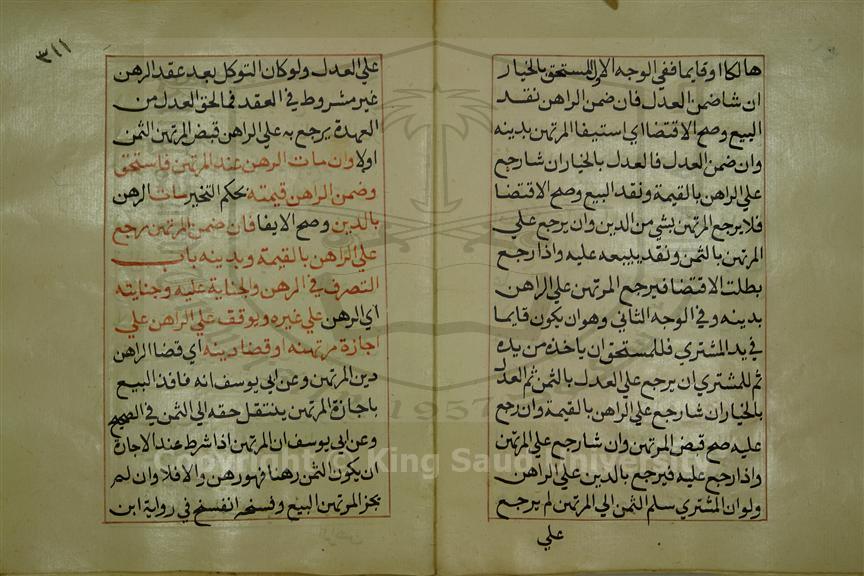 هالكا او قايما ففي الوجه الاول للمستحق بالخيار
ان شا ضمن العدل فان ضمن الراهن نفد
البيع وصح الاقتضا اي استيفا المرتهن بدينه
وان ضمن العدل فالعدل بالخيار ان شا رجع
علي الراهن بالقيمة ونفد البيع وصح الاقتضا
فلا يرجع المرتهن بشي من الدين وان يرجع علي
المرتهن بالثمن ونفد بيعه عليه واذا رجع
بطلت الاقتضا فيرجع المرتهن علي الراهن
بدينه وفي الوجه الثاني وهو ان يكون قايما
في يد المشتري فللمستحق ان ياخذه من يده
ثم للمشتري ان يرجع علي العدل بالثمن ثم العدل
بالخيار ان شا رجع علي الراهن بالقيمة وان رجع
عليه صح قبض المرتهن وان شا رجع علي المرتهن
واذا رجع عليه فيرجع بالدين علي الراهن
ولو ان المشتري سلم الثمن الي المرتهن لم يرجع
علي
٣١١
علي العدل ولو كان التوكل بعد عقد الرهن
غير مشروط في العقد فما لحق العدل من
العهدة يرجع به علي الراهن قبض المرتهن الثمن
اولا وان مات الرهن عند المرتهن فاستحق
وضمن الراهن قيمته بحكم التخير مات الرهن
بالدين وصح الايفا فان ضمن المرتهن رجع
علي الراهن بالقيمة وبدينه باب
التصرف في الرهن والجناية عليه وجنايته
اي الرهن علي غيره ويوقف علي الراهن علي
اجازة مرتهنه او قضا دينه اي قضا الراهن
دين المرتهن وعن ابي يوسف انه نافذ البيع
باجازة المرتهن ينتقل حقه الي الثمن في الصحيح
وعن ابي يوسف ان المرتهن اذا شرط عند الاجازة
ان يكون الثمن رهنا فهو رهن والا فلا وان لم
يجز المرتهن البيع وفسخه انفسخ في رواية ابن
1957
Copyright © King Saud University